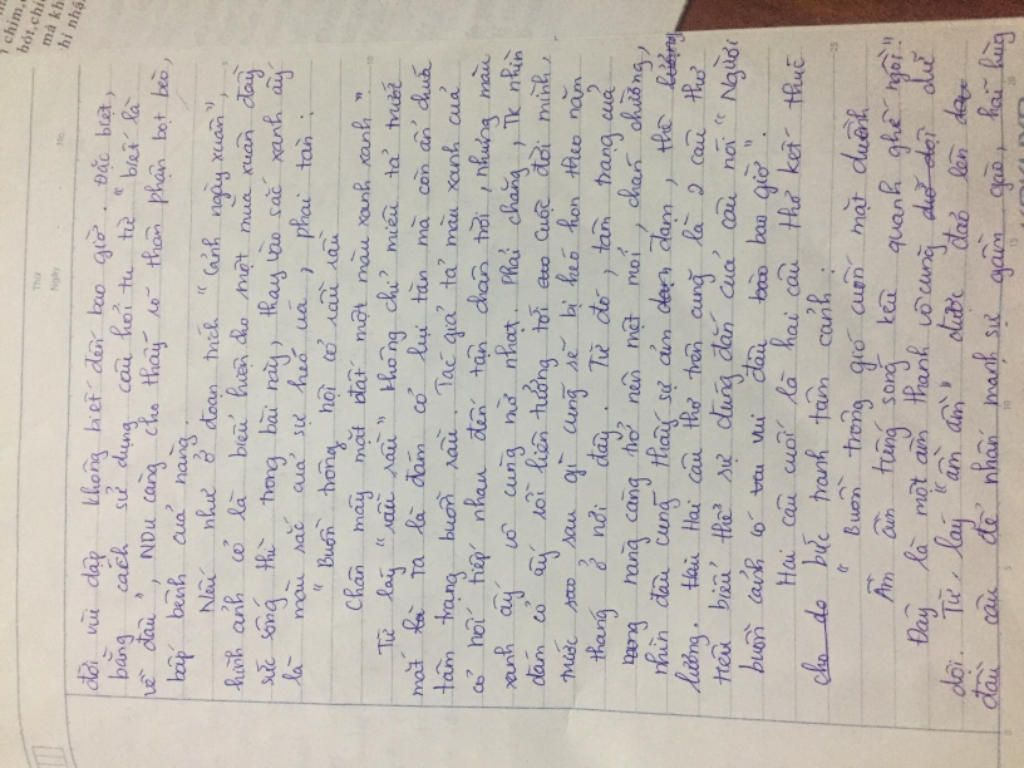 chim,
hót, chi
mà kh
hi nhấ
Thứ
Ngày
No.
đời vùi dập không biết đến bao giờ. Đặc biệt,
bằng cách sử dụng câu hỏi tu từ "biết là
về đâu", NDu càng cho thấy số thân phận bọt bèo,
bấp bênh của nàng.
Nếu như ở đoạn trích "Cảnh ngày xuân",
hình ảnh cỏ là biểu hiện cho một mùa xuân đầy
sức sống thì trong bài này, thay vào sắc xanh ấy
là màu sắc của sự héo úa, phai tàn:
"Buồn trông nội cỏ rầu rầu
Chân mây mặt đất một màu xanh xanh"
Từ láy "rầu rầu" không chỉ miêu tả trước
mắt ta là đám cỏ lụi tàn mà còn ẩn chứa
tâm trạng buồn rầu. Tác giả tả màu xanh của
cỏ nối tiếp nhau đến tận chân trời, nhưng màu
xanh ấy vô cùng mờ nhạt. Phải chăng, TK nhìn
đám cỏ ấy rồi liên tưởng tới cuộc đời mình,
trước sau gì cũng sẽ bị héo hon theo năm
tháng ở nơi đây. Từ đó, tâm trạng của
nàng càng trở nên mệt mỏi, chán chường,
nhìn đâu cũng thấy sự ảm đạm, thê
lương. Hai câu thơ trên cũng là 2 câu thơ
tiêu biểu thể sự đúng đắn của câu nói "Người
buồn cảnh có vui đâu bao giờ".
Hai câu cuối là hai câu thơ kết thúc
cho bức tranh tàn cảnh:
"Buồn trông gió cuốn mặt duềnh
Ầm ầm tiếng sóng kêu quanh ghế ngồi"
Đây là một âm thanh vô cùng dữ
dội. Từ láy "ầm ầm" được đảo lên
đầu câu để nhấn mạnh sự gầm gào, hãi hùng